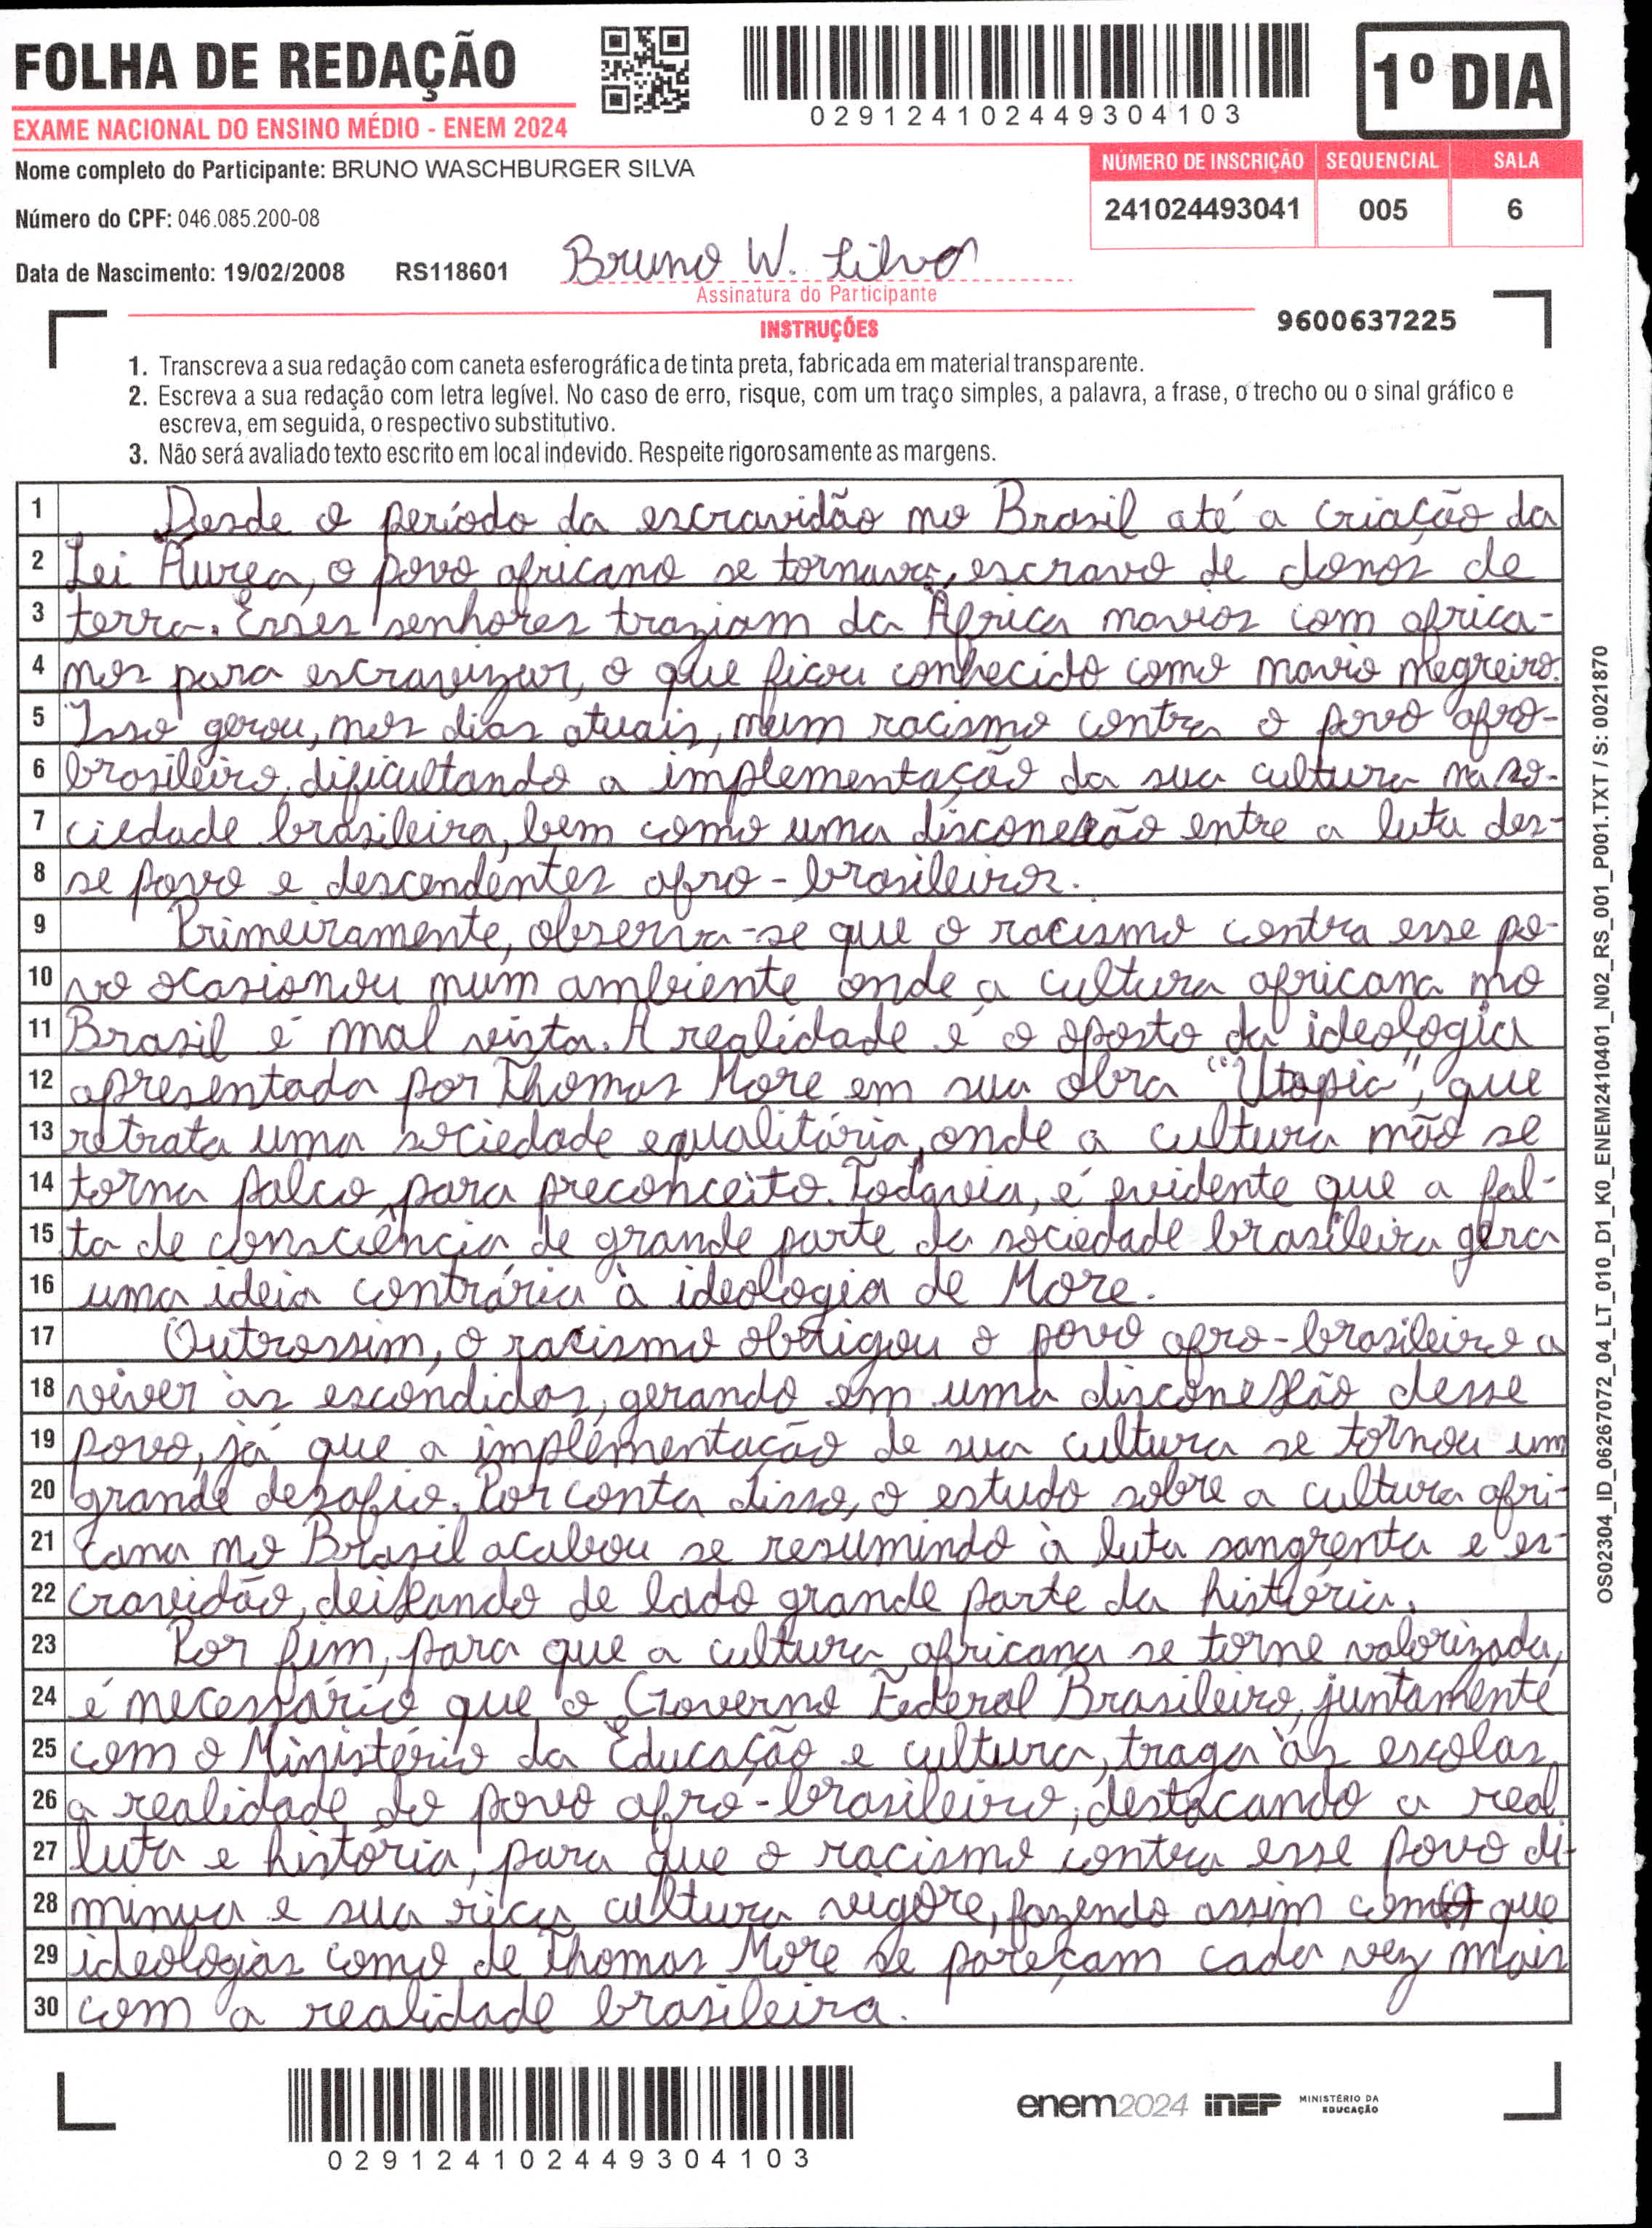 FOLHA DE REDAÇÃO
EXAME NACIONAL DO ENSINO MÉDIO - ENEM 2024
029124102449304103
1º DIA
Nome completo do Participante: BRUNO WASCHBURGER SILVA
NÚMERO DE INSCRIÇÃO SEQUENCIAL SALA
241024493041 005 6
Número do CPF: 046.085.200-08
Data de Nascimento: 19/02/2008 RS118601
Bruno W. Silva
Assinatura do Participante
INSTRUÇÕES
9600637225
1. Transcreva a sua redação com caneta esferográfica de tinta preta, fabricada em material transparente.
2. Escreva a sua redação com letra legível. No caso de erro, risque, com um traço simples, a palavra, a frase, o trecho ou o sinal gráfico e
escreva, em seguida, o respectivo substitutivo.
3. Não será avaliado texto escrito em local indevido. Respeite rigorosamente as margens.
1 Desde o período da escravidão no Brasil até a criação da
2 Lei Áurea, o povo africano se tornava escravo de donos de
3 terra. Esses senhores traziam da África navios com africa-
4 nos para escravizar, o que ficou conhecido como navio negreiro.
5 Isso gerou, nos dias atuais, num racismo contra o povo afro-
6 brasileiro, dificultando a implementação da sua cultura na so-
7 ciedade brasileira, bem como uma disconexão entre a luta des-
8 se povo e descendentes afro-brasileiros.
9 Primeiramente, observa-se que o racismo contra esse po-
10 vo ocasionou num ambiente onde a cultura africana no
11 Brasil é mal vista. A realidade é o oposto da ideologia
12 apresentada por Thomas More em sua obra "Utopia", que
13 retrata uma sociedade equalitária, onde a cultura não se
14 torna palco para preconceito. Todavia, é evidente que a fal-
15 ta de consciência de grande parte da sociedade brasileira gera
16 uma ideia contrária à ideologia de More.
17 Outrossim, o racismo obrigou o povo afro-brasileiro a
18 viver às escondidas, gerando em uma disconexão desse
19 povo, já que a implementação de sua cultura se tornou um
20 grande desafio. Por conta disso, o estudo sobre a cultura afri-
21 cana no Brasil acabou se resumindo à luta sangrenta e es-
22 cravidão, deixando de lado grande parte da história.
23 Por fim, para que a cultura africana se torne valorizada,
24 é necessário que o Governo Federal Brasileiro, juntamente
25 com o Ministério da Educação e cultura, traga às escolas
26 a realidade do povo afro-brasileiro, destacando a real
27 luta e história, para que o racismo contra esse povo di-
28 minua e sua rica cultura vigore, fazendo assim com que
29 ideologias como de Thomas More se pareçam cada vez mais
30 com a realidade brasileira.
029124102449304103
enem2024 inep MINISTÉRIO DA
EDUCAÇÃO
OS02304_ID_06267072_04_LT_010_D1_K0_ENEM2410401_N02_RS_001_P001.TXT / S: 0021870